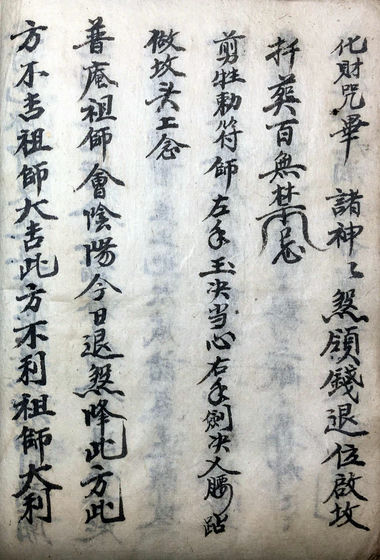 化財咒畢 諸神〻煞領錢退位啟坟
扦葵百無禁忌
剪牲勅符師左手玉决当心右手劍决叉腰跕
做坟头工念
普庵祖師會陰陽今日退煞降此方此
方不吉祖師大吉此方不利祖師大利